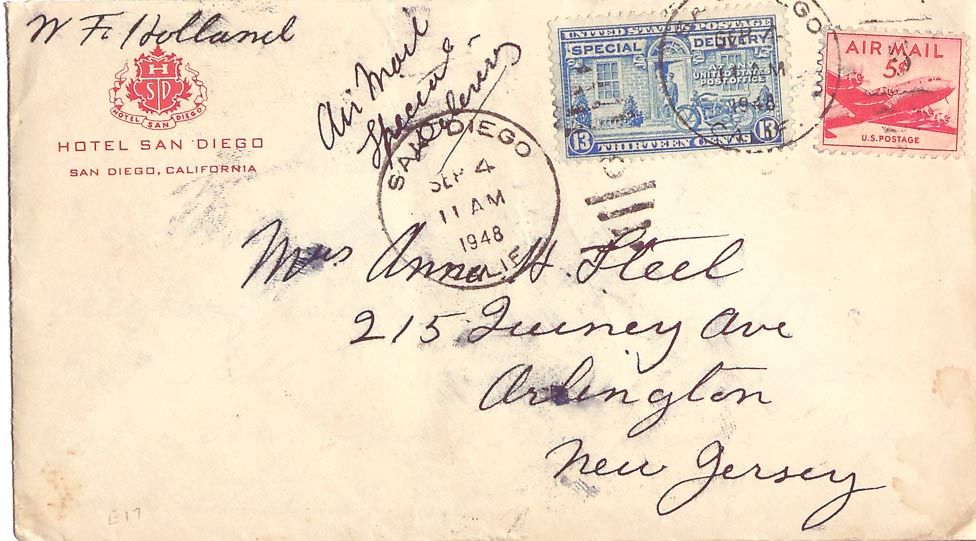 W F. Holland
H
S D
HOTEL SAN DIEGO
HOTEL SAN DIEGO
SAN DIEGO, CALIFORNIA
Air Mail
Special
Delivery
UNITED STATES POSTAGE
SPECIAL DELIVERY
AT ANY
UNITED STATES
POST OFFICE
13 THIRTEEN CENTS 13
AIR MAIL
5¢
U.S. POSTAGE
SAN DIEGO
SEP 4
11 AM
1948
CALIF.
SAN DIEGO
SEP 4
11 AM
1948
CALIF.
Mrs Anna H. Steel
215 Quincy Ave
Arlington
New Jersey
E17